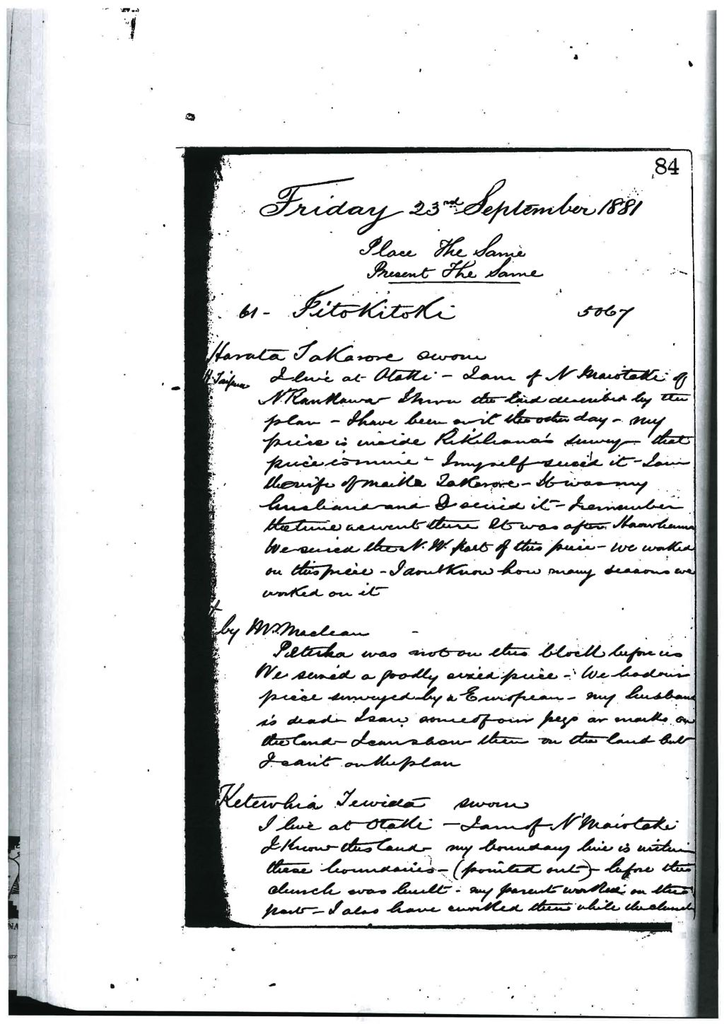 84
Friday 23rd September 1881
Place The Same
Present The Same
61 - Titokitoki 5067
Harata Takarore sworn
I live at Otaki - I am of N Maiotaki of
N Raukawa I know the land described by the
plan - I have been on it the other day - my
piece is inside Rikihana's survey - that
piece is mine - I myself seized it - I am
the wife of Takarore - It was my
husband and I seized it - I remember
the time we went there It was after Haowhenua
We seized the N.W. part of this piece - we worked
on this piece - I don't know how many seasons we
worked on it
by Mr Maclean
was not on this block before us
We seized a goodly sized piece - We had our
piece surveyed by a European - my husband
is dead - I saw some of our pegs or marks on
the land - I can show them on the land but
I can't on the plan
Tewida sworn
I live at Otaki - I am of N' Maiotaki
I know this land - my boundary line is within
these boundaries - (pointed out) - before the
church was built - my parent worked on this
part - I also have worked there while the church